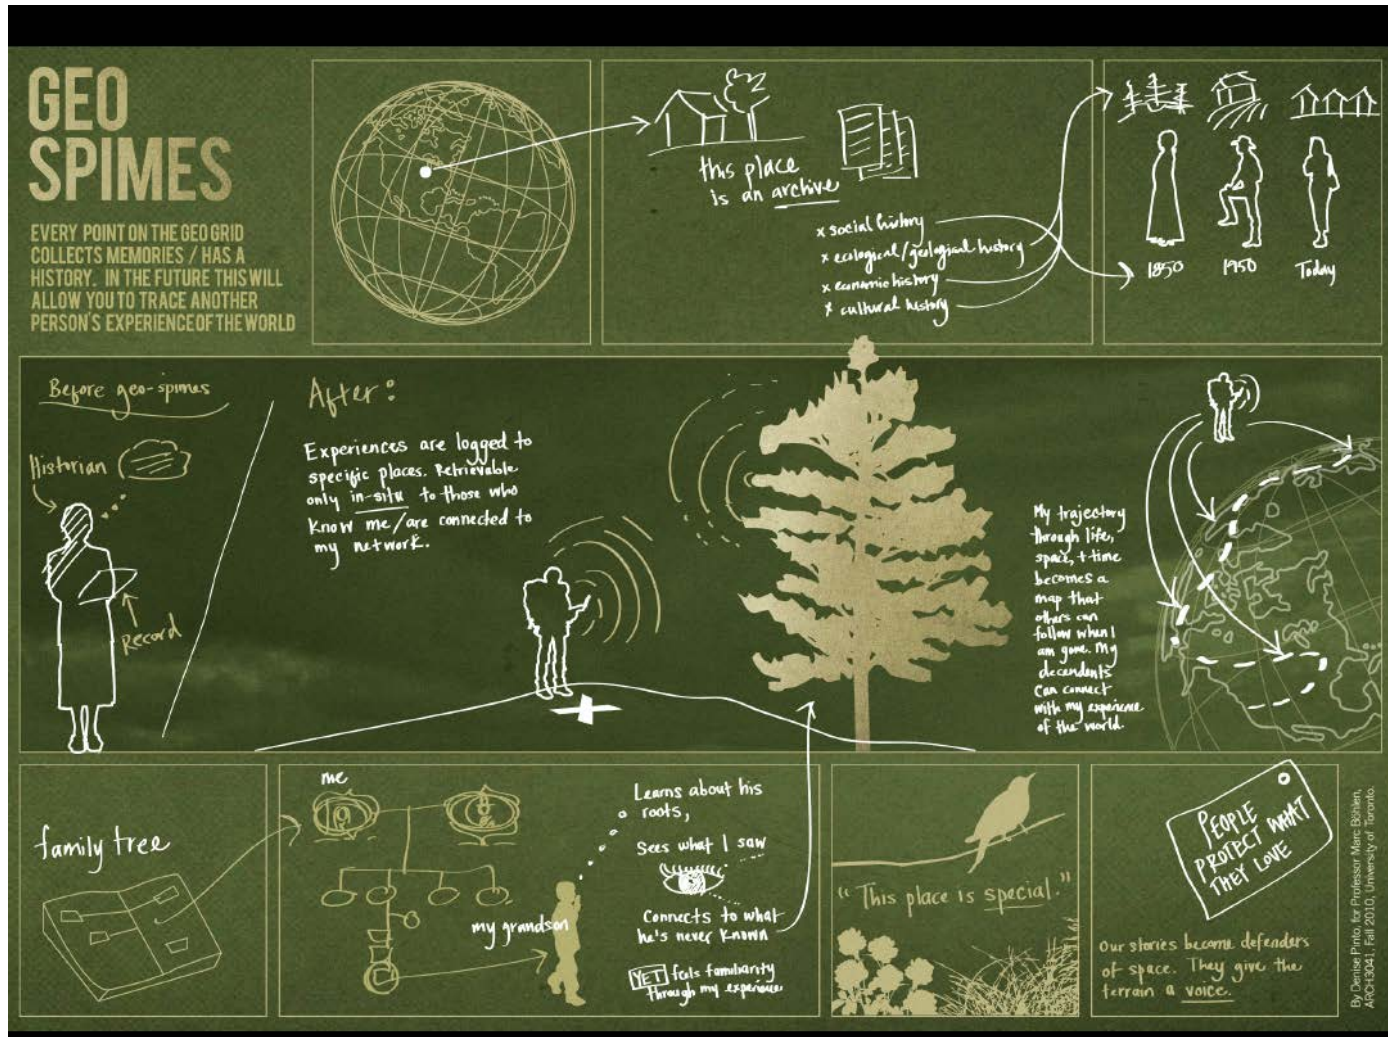 GEO
SPIMES
EVERY POINT ON THE GEO GRID
COLLECTS MEMORIES / HAS A
HISTORY. IN THE FUTURE THIS WILL
ALLOW YOU TO TRACE ANOTHER
PERSON'S EXPERIENCE OF THE WORLD
this place
is an archive
x social history
x ecological/geological history
x economic history
x cultural history
1850
1950
Today
Before geo-spimes
Historian
Record
After:
Experiences are logged to
specific places. Retrievable
only in-situ to those who
know me/are connected to
my network.
My trajectory
through life,
space, + time
becomes a
map that
others can
follow when I
am gone. My
decendents
can connect
with my experience
of the world.
family tree
me
my grandson
Learns about his
roots,
Sees what I saw
Connects to what
he's never known
YET feels familiarity
through my experience
"This place is special."
PEOPLE
PROTECT WHAT
THEY LOVE
Our stories become defenders
of space. They give the
terrain a voice.
By Denise Pinto, for Professor Marc Böhlen,
ARCH3041, Fall 2010, University of Toronto.